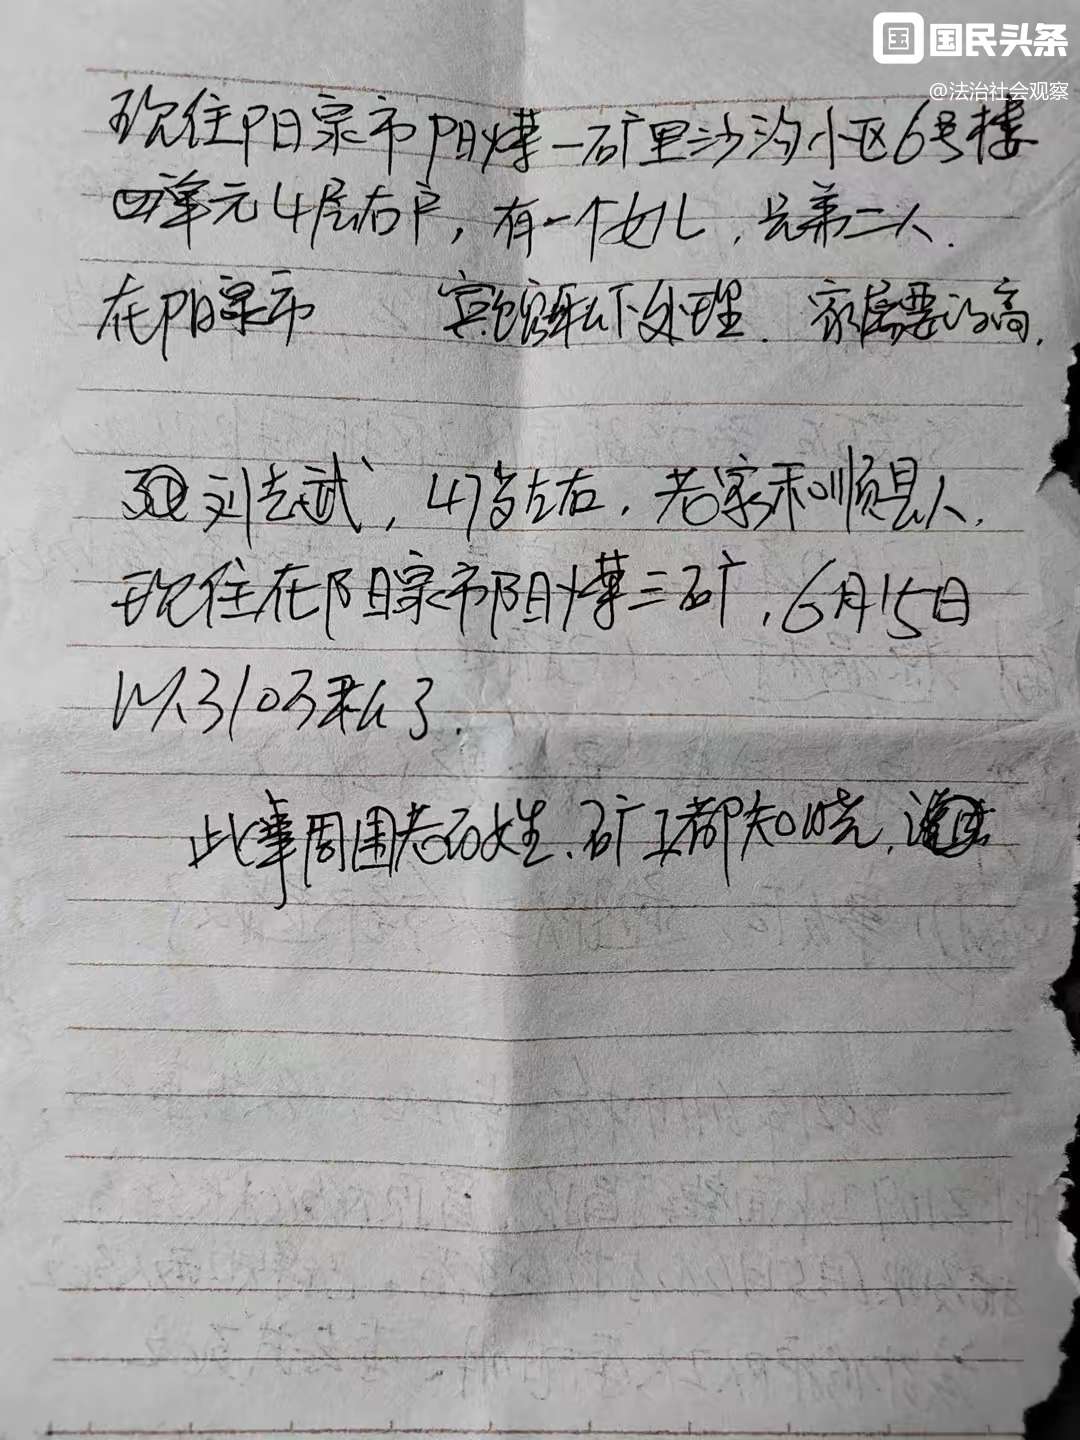 国民头条
@法治社会观察
现住阳泉市阳煤一矿里沙沟小区6号楼
四单元4层右户，有一个女儿，兄弟二人．
在阳泉市 宾馆私下处理．家属要的高．
刘志武，47岁左右，老家和顺县人．
现住在阳泉市阳煤三矿，6月15日
以310万私了．
此事周围老百姓、矿工都知晓，请